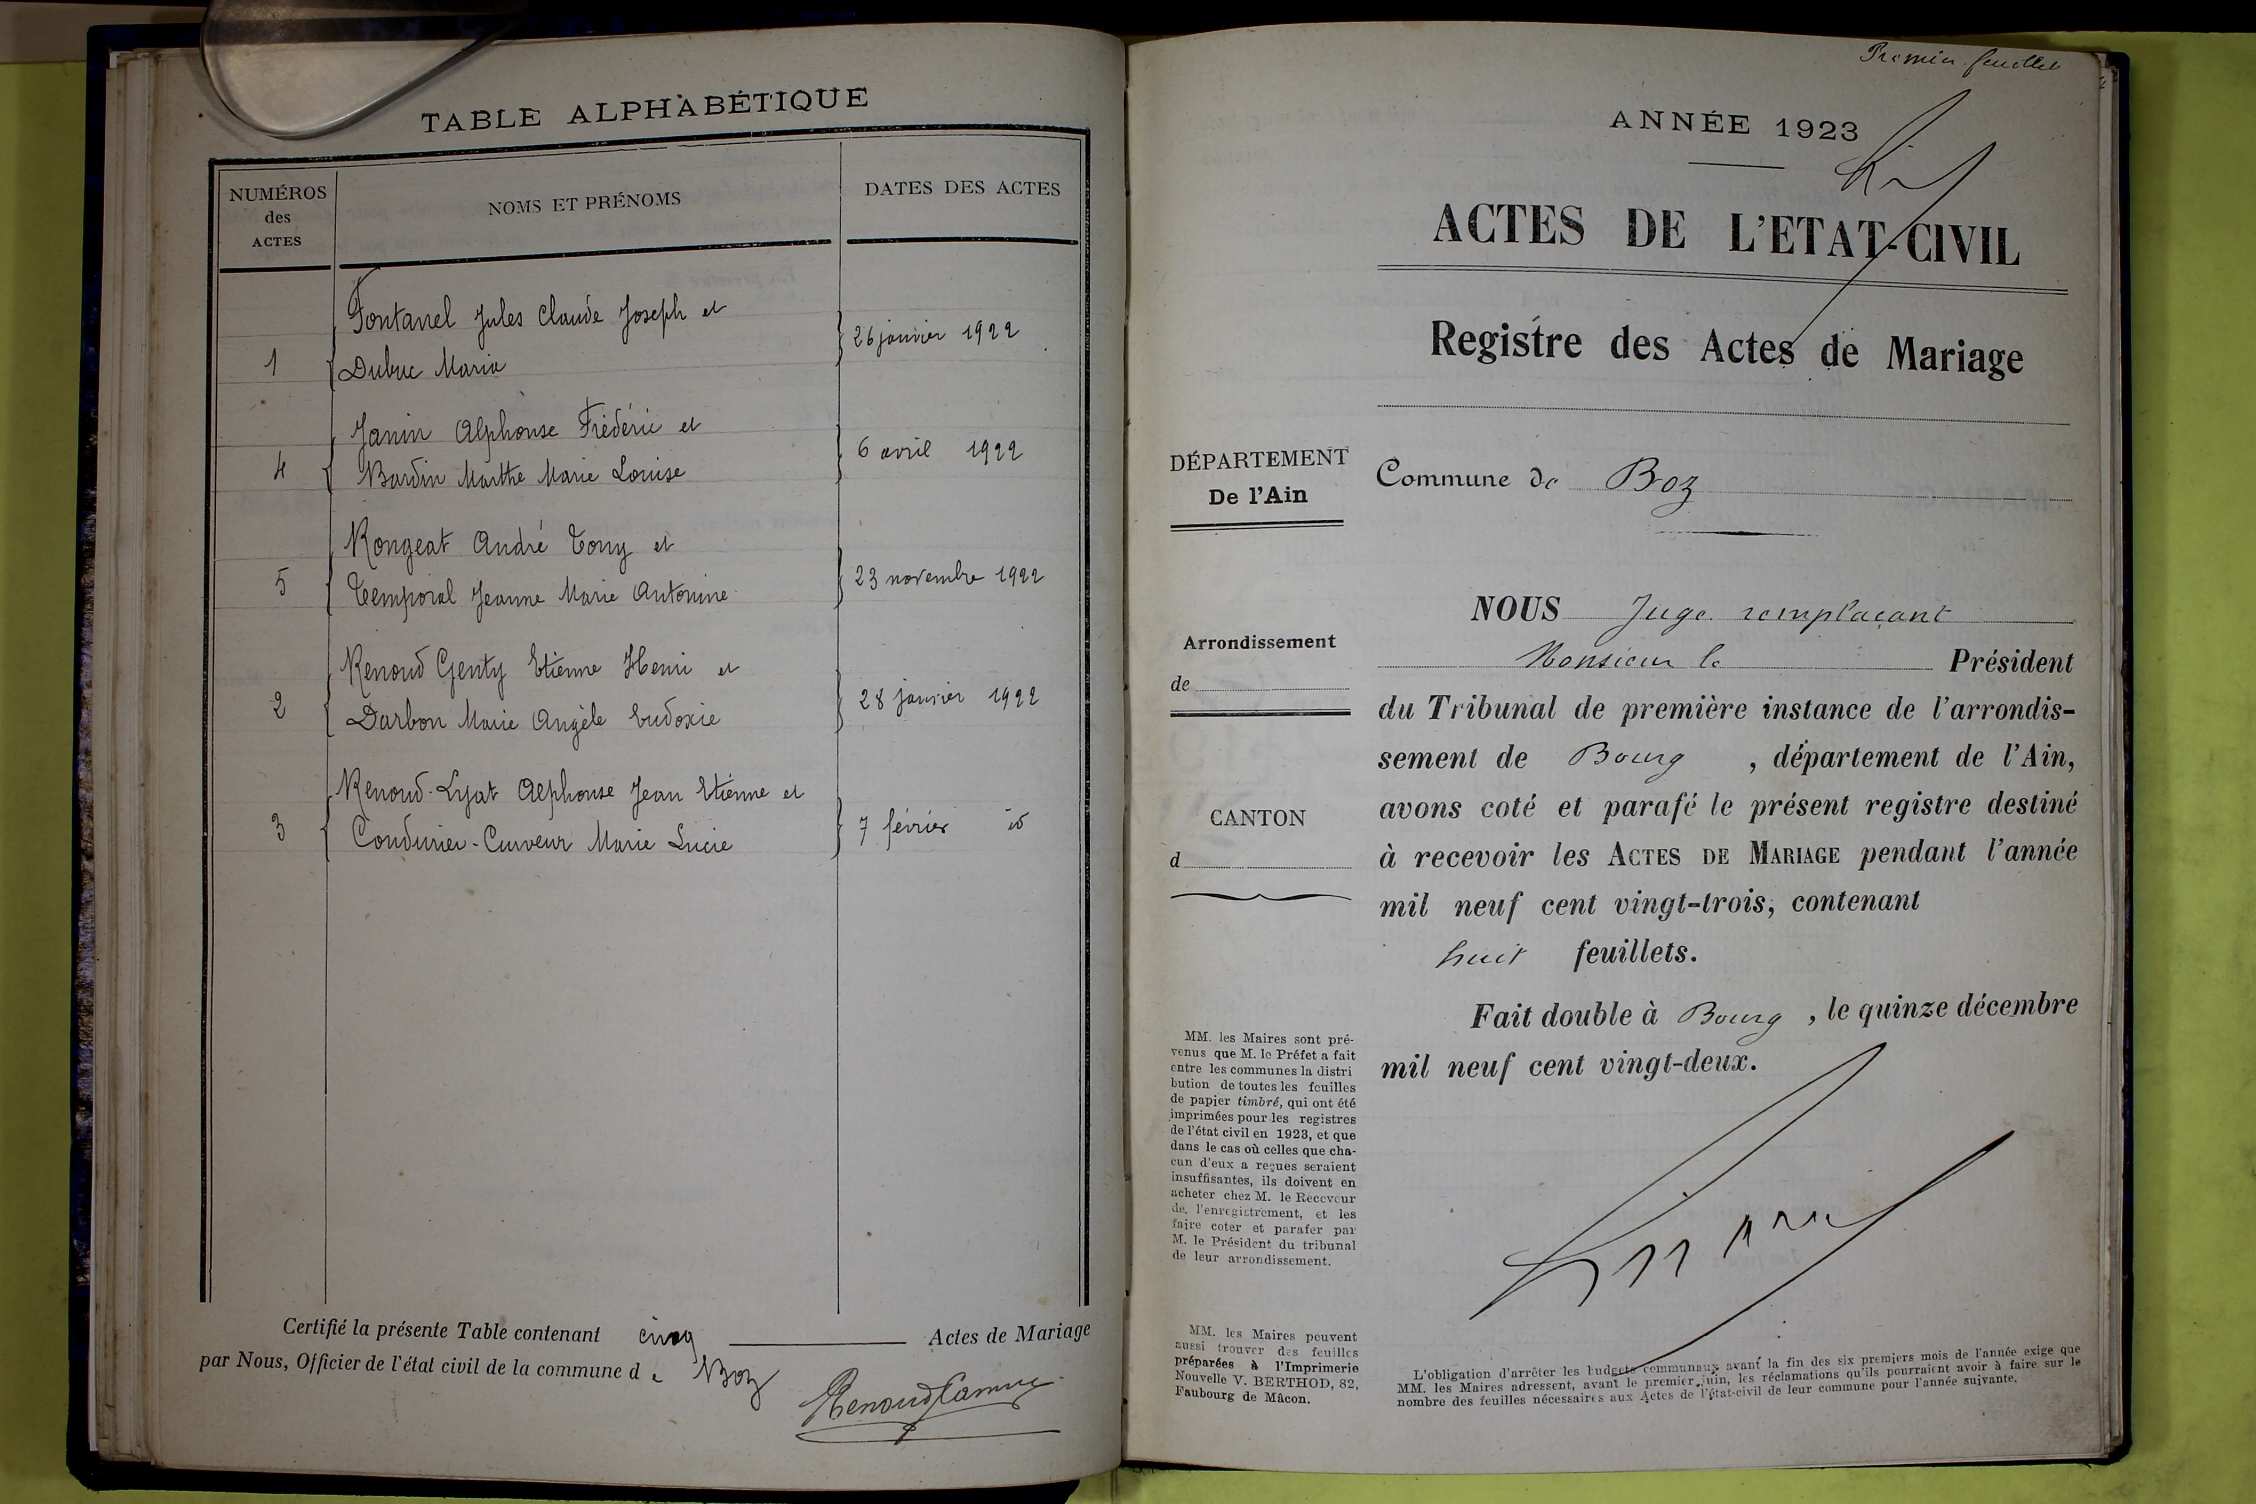 TABLE ALPHABÉTIQUE
NUMÉROS
des
ACTES
NOMS ET PRÉNOMS
DATES DES ACTES
Fontanel Jules Claude Joseph et
1
Dubuc Maria
26 janvier 1922
Janin Alphonse Frédéric et
4
Bardin Marthe Marie Louise
6 avril 1922
Rongeat André Tony et
5
Temporal Jeanne Marie Antonine
23 novembre 1922
Renoud Genty Etienne Henri et
2
Darbon Marie Angèle Eudoxie
28 janvier 1922
Renoud-Lyat Alphonse Jean Etienne et
3
Condurier-Curveur Marie Lucie
7 février id
Certifié la présente Table contenant cinq Actes de Mariage
par Nous, Officier de l'état civil de la commune de Boz
Renoud Camus
Premier feuillet
ANNÉE 1923
ACTES DE L'ETAT-CIVIL
Registre des Actes de Mariage
DÉPARTEMENT
De l'Ain
Commune de Boz
Arrondissement
de
CANTON
d
NOUS Juge remplaçant
Monsieur le Président
du Tribunal de première instance de l'arrondis-
sement de Bourg, département de l'Ain,
avons coté et parafé le présent registre destiné
à recevoir les ACTES DE MARIAGE pendant l'année
mil neuf cent vingt-trois, contenant
huit feuillets.
Fait double à Bourg, le quinze décembre
mil neuf cent vingt-deux.
MM. les Maires sont pré-
venus que M. le Préfet a fait
entre les communes la distri
bution de toutes les feuilles
de papier timbré, qui ont été
imprimées pour les registres
de l'état civil en 1923, et que
dans le cas où celles que cha-
cun d'eux a reçues seraient
insuffisantes, ils doivent en
acheter chez M. le Receveur
de l'enregistrement, et les
faire coter et parafer par
M. le Président du tribunal
de leur arrondissement.
MM. les Maires peuvent
aussi trouver des feuilles
préparées à l'Imprimerie
Nouvelle V. BERTHOD, 82,
Faubourg de Mâcon.
L'obligation d'arrêter les budgets communaux avant la fin des six premiers mois de l'année exige que
MM. les Maires adressent, avant le premier juin, les réclamations qu'ils pourraient avoir à faire sur le
nombre des feuilles nécessaires aux Actes de l'état-civil de leur commune pour l'année suivante.